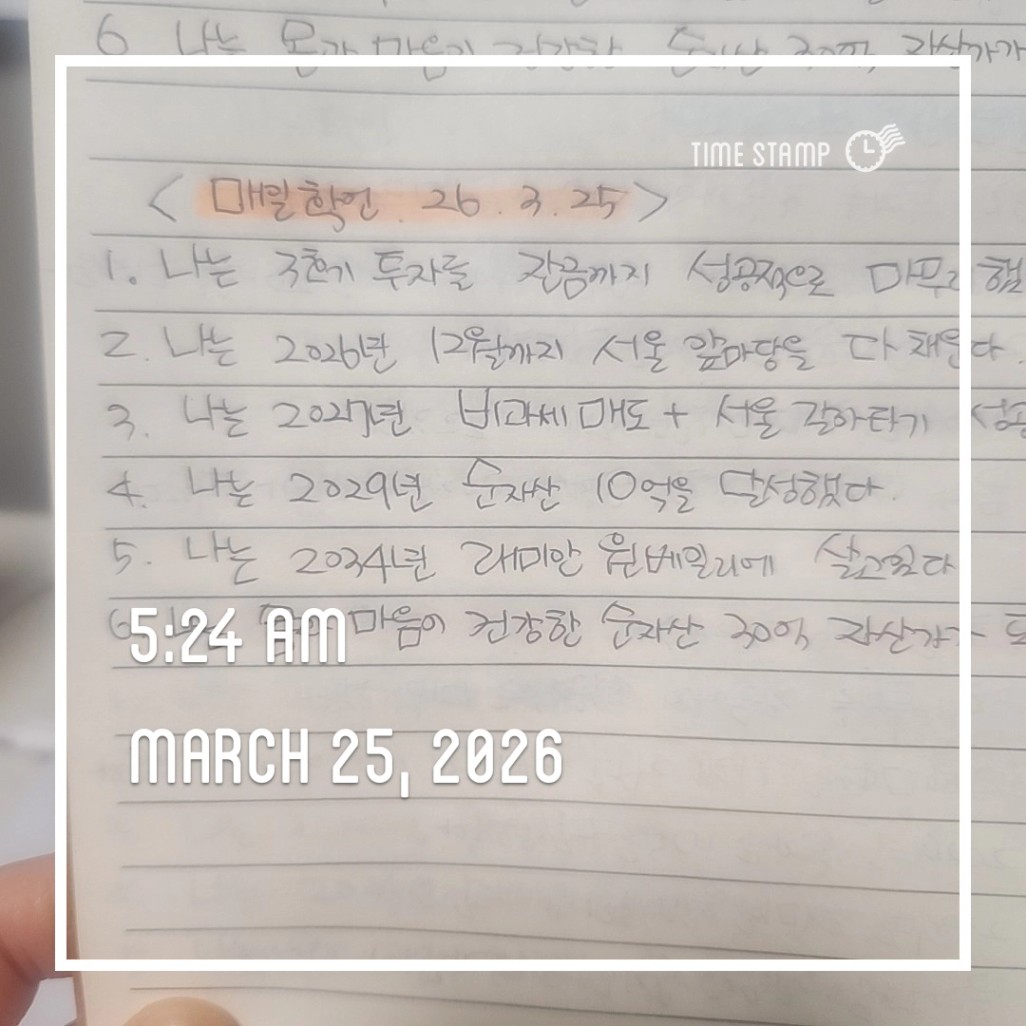 6 나는 몸과 마음이 건강한 순자산 30억 자산가가
TIME STAMP
< 매일확언. 26. 3. 25 >
1. 나는 3호기 투자를 잔금까지 성공적으로 마무리 했
2. 나는 2026년 12월까지 서울 앞마당을 다 채운다.
3. 나는 2027년 비과세 매도 + 서울 갈아타기 성공
4. 나는 2029년 순자산 10억을 달성했다.
5. 나는 2034년 래미안 원베일리에 살고있다
마음이 건강한 순자산 30억 자산가가
5:24 AM
MARCH 25, 2026